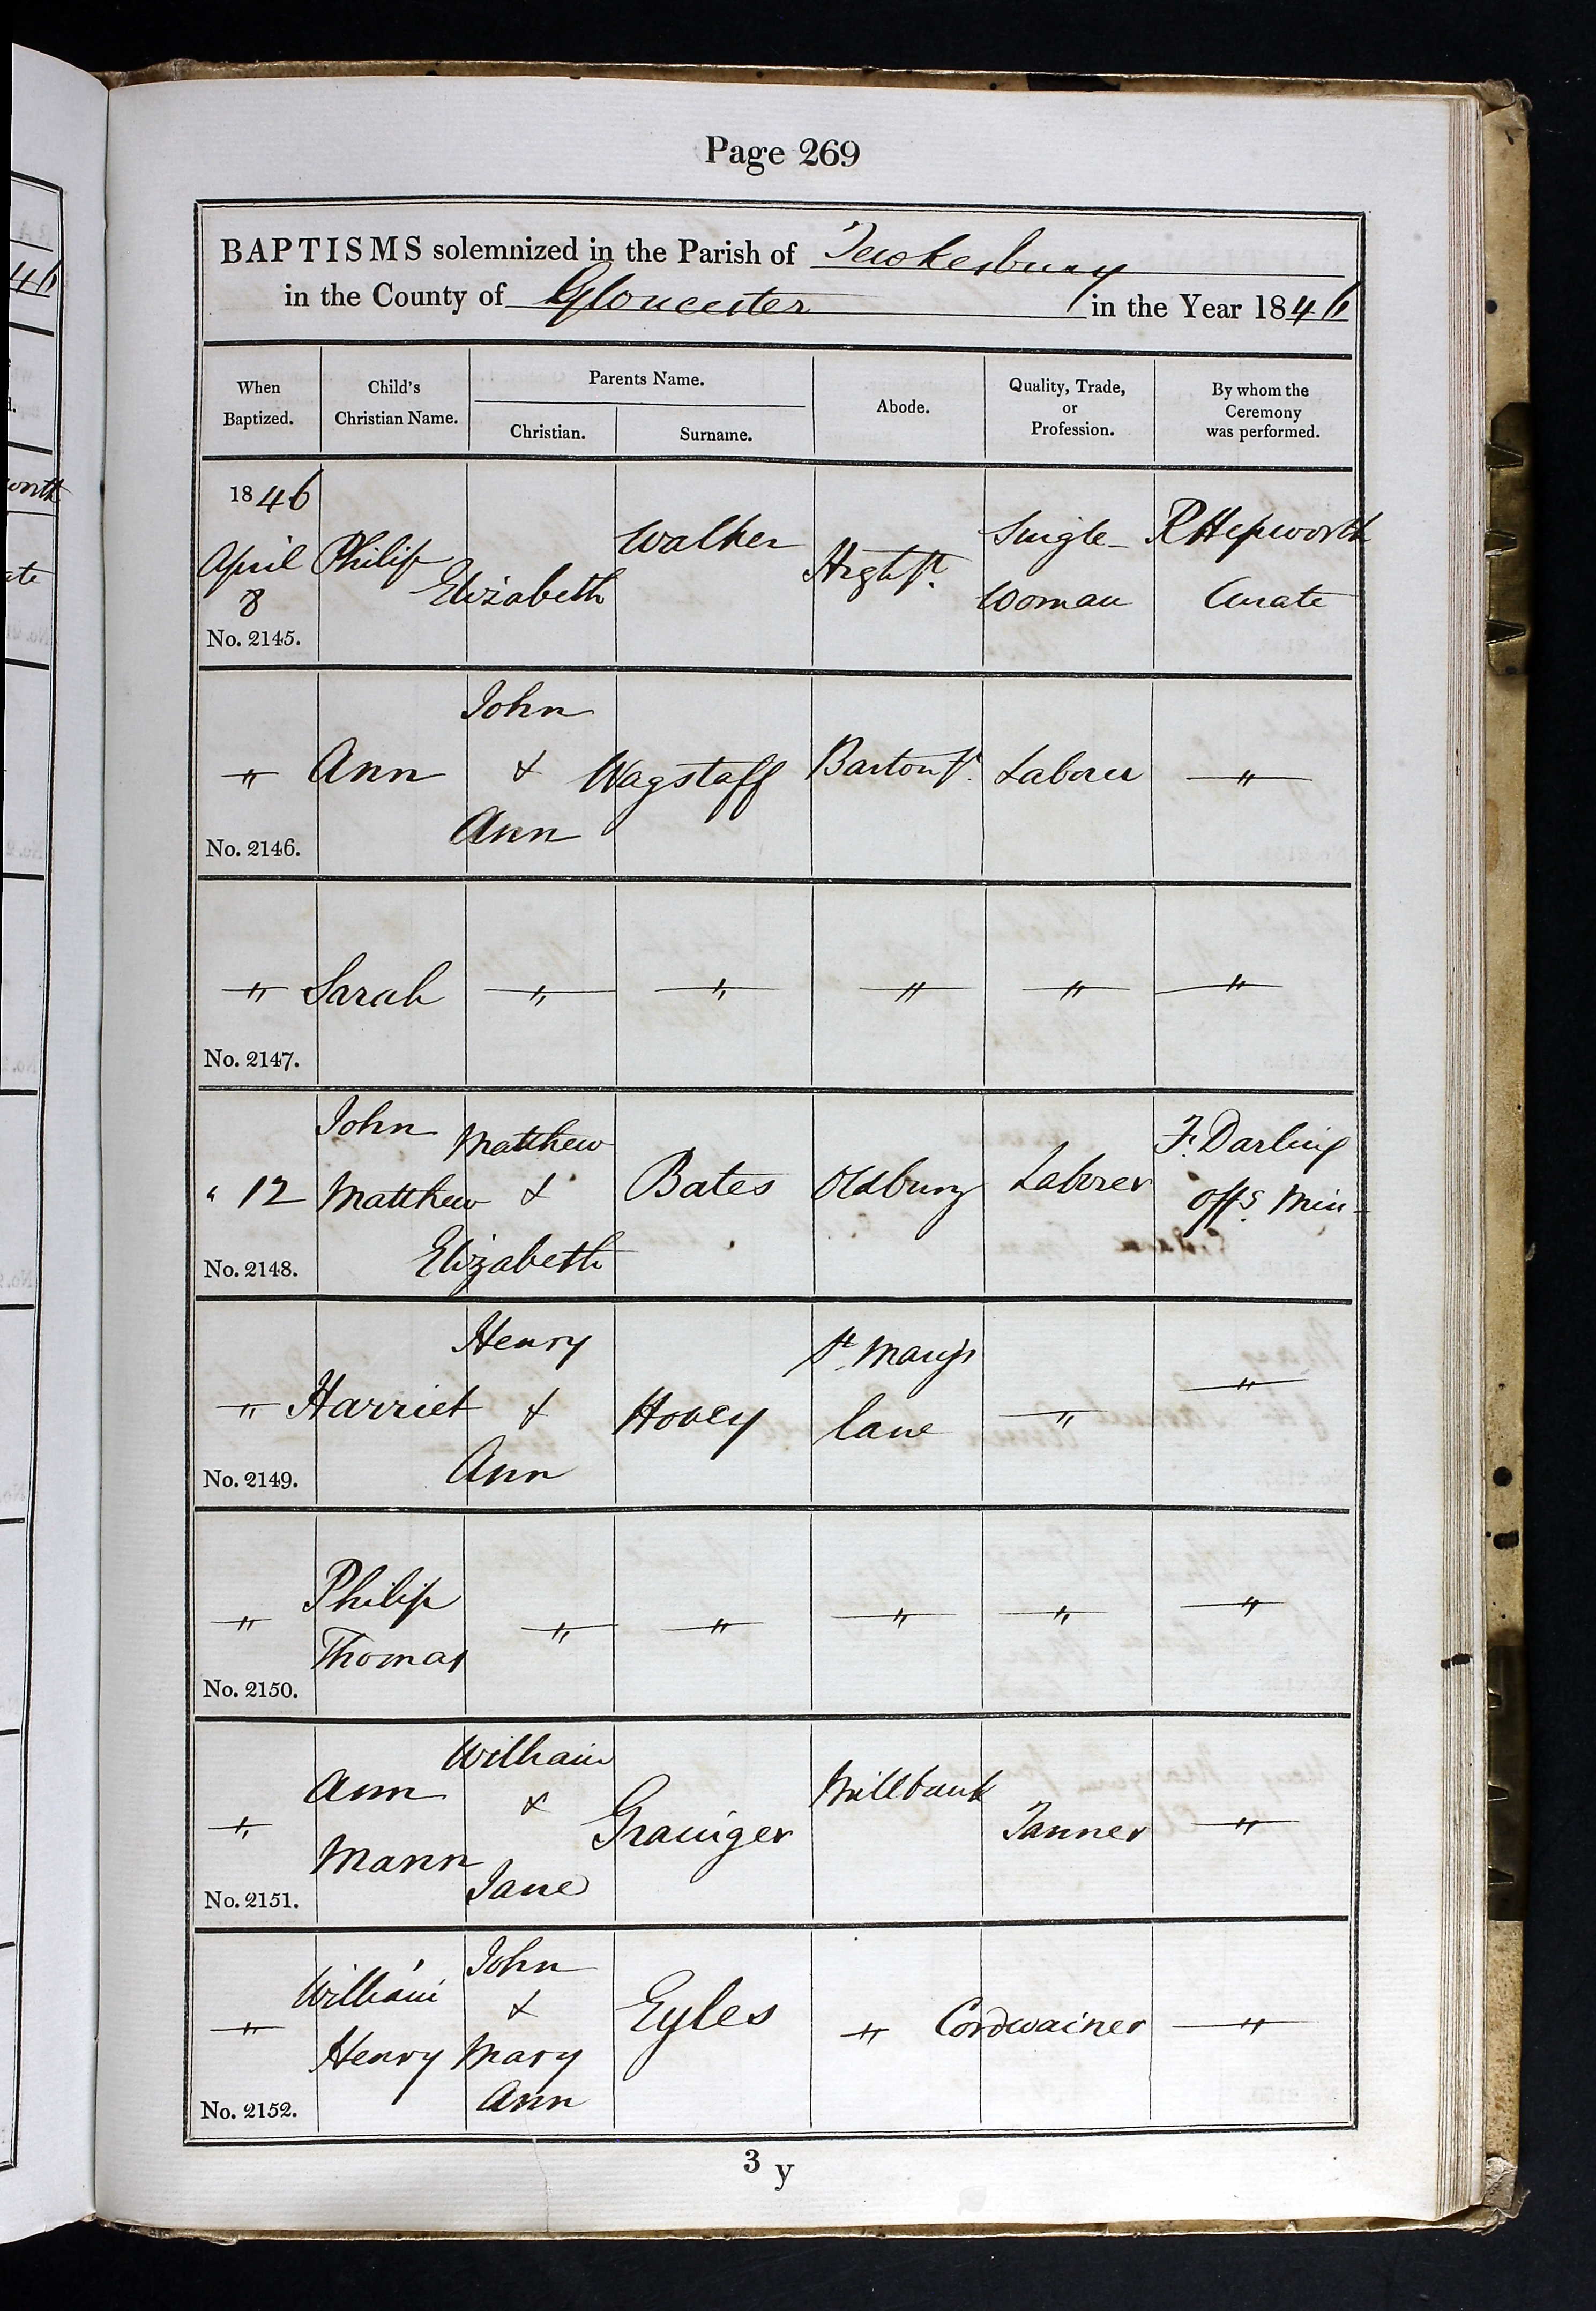 Page 269
BAPTISMS solemnized in the Parish of Tewkesbury
in the County of Gloucester in the Year 1846
When Baptized.
Child's Christian Name.
Parents Name.
Christian.
Surname.
Abode.
Quality, Trade, or Profession.
By whom the Ceremony was performed.
1846
April 8
No. 2145.
Philip
Elizabeth
Walker
High St.
Single
Woman
R Hepworth
Curate
"
No. 2146.
Ann
John
&
Ann
Wagstaff
Barton St.
Laborer
"
"
No. 2147.
Sarah
"
"
"
"
"
" 12
No. 2148.
John
Matthew
Matthew
&
Elizabeth
Bates
Oldbury
Laborer
F. Darling
Offg. Min
"
No. 2149.
Harriet
Henry
&
Ann
Hovey
St. Mary's
lane
"
"
"
No. 2150.
Philip
Thomas
"
"
"
"
"
"
No. 2151.
Ann
Mann
William
&
Jane
Grainger
Millbank
Tanner
"
"
No. 2152.
William
Henry
John
&
Mary
Ann
Eyles
"
Cordwainer
"
3 y